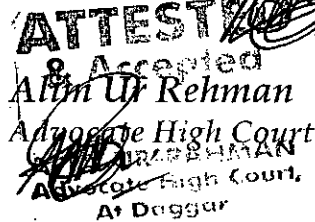 ATTESTED
& Accepted
Alim Ur Rehman
Advocate High Court
UR REHMAN
Advocate High Court,
At Daggar